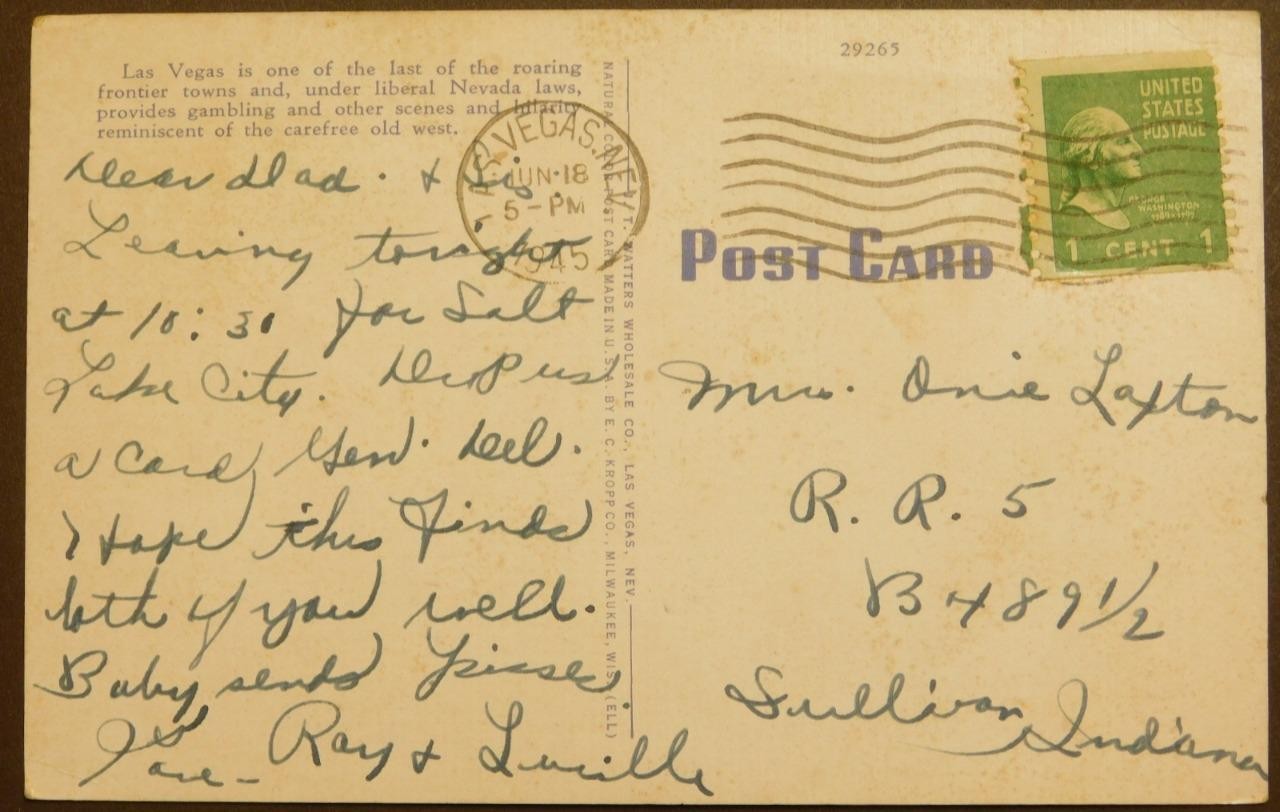 29265
Las Vegas is one of the last of the roaring
frontier towns and, under liberal Nevada laws,
provides gambling and other scenes and hilarity
reminiscent of the carefree old west.
LAS VEGAS, NEV.
JUN 18
5 - PM
1945
UNITED
STATES
POSTAGE
GEORGE
WASHINGTON
1789-1797
1 CENT 1
POST CARD
Dear Dad. & Sis
Leaving tonight
at 10:30 for Salt
Lake City. Drop us
a card Gen. Del.
Hope this finds
both of you well.
Baby sends kisses
Love - Ray & Lucille
NATURAL COLOR POST CARD MADE IN U.S.A. BY E. C. KROPP CO., MILWAUKEE, WIS. (ELL)
WATTERS WHOLESALE CO., LAS VEGAS, NEV.
Mrs. Onie Laxton
R. R. 5
B 489 1/2
Sullivan, Indiana